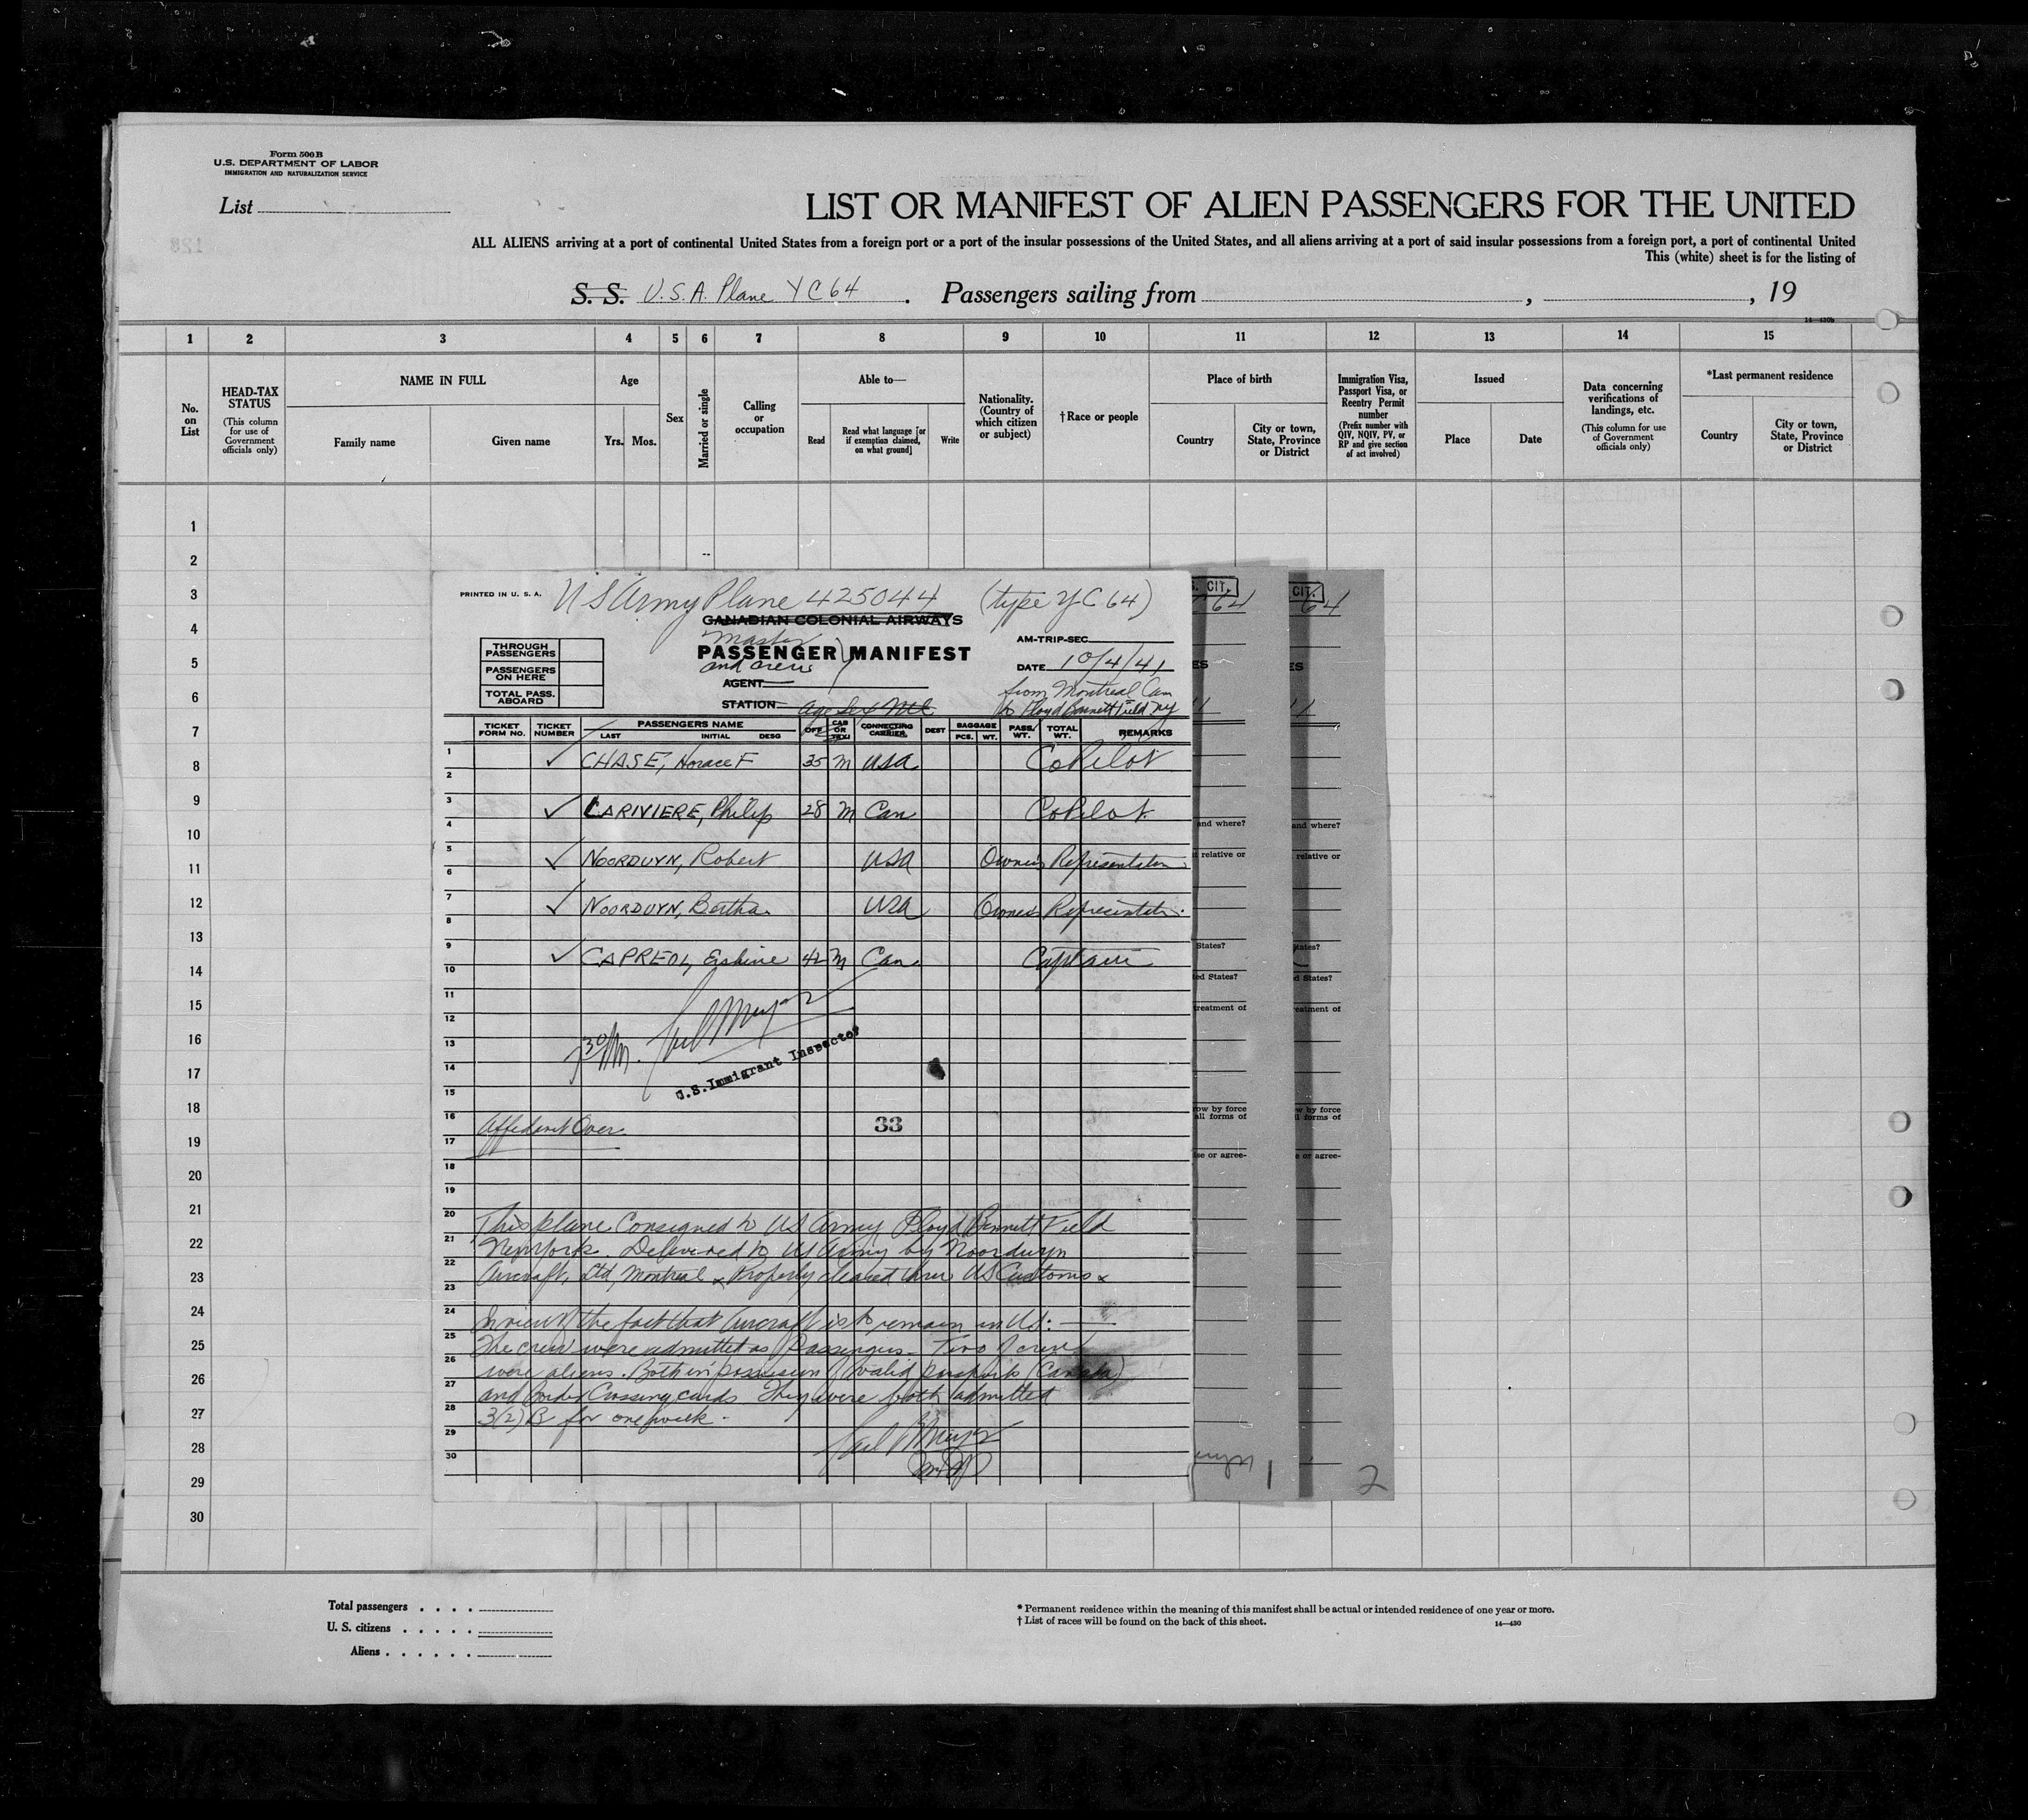 Form 500 B
U.S. DEPARTMENT OF LABOR
IMMIGRATION AND NATURALIZATION SERVICE
List
LIST OR MANIFEST OF ALIEN PASSENGERS FOR THE UNITED
ALL ALIENS arriving at a port of continental United States from a foreign port or a port of the insular possessions of the United States, and all aliens arriving at a port of said insular possessions from a foreign port, a port of continental United
This (white) sheet is for the listing of
S. S. U.S.A. Plane YC64 . Passengers sailing from , , 19
14—430b
1 2 3 4 5 6 7 8 9 10 11 12 13 14 15
No. on List
HEAD-TAX STATUS (This column for use of Government officials only)
NAME IN FULL
Family name Given name
Age
Yrs. Mos.
Sex
Married or single
Calling or occupation
Able to—
Read Read what language [or if exemption claimed, on what ground] Write
Nationality. (Country of which citizen or subject)
† Race or people
Place of birth
Country City or town, State, Province or District
Immigration Visa, Passport Visa, or Reentry Permit number (Prefix number with QIV, NQIV, PV, or RP and give section of act involved)
Issued
Place Date
Data concerning verifications of landings, etc. (This column for use of Government officials only)
*Last permanent residence
Country City or town, State, Province or District
1
2
3
4
5
6
7
8
9
10
11
12
13
14
15
16
17
18
19
20
21
22
23
24
25
26
27
28
29
30
PRINTED IN U. S. A.
US Army Plane 425044 (type YC64)
CANADIAN COLONIAL AIRWAYS
Master
PASSENGER MANIFEST
and crew
THROUGH PASSENGERS
PASSENGERS ON HERE
TOTAL PASS. ABOARD
AGENT
STATION Age Sex Ntl
AM-TRIP-SEC.
DATE 10/4/41
from Montreal Can
to Floyd Bennett Field NY
TICKET FORM NO. TICKET NUMBER PASSENGERS NAME LAST INITIAL DESG OFF CAB OR TAXI CONNECTING CARRIER DEST BAGGAGE PCS. WT. PASS. WT. TOTAL WT. REMARKS
1 ✓ CHASE, Horace F 35 M USA CoPilot
2
3 ✓ LARIVIERE, Philip 28 M Can CoPilot
4
5 ✓ NOORDUYN, Robert USA Owners Representative
6
7 ✓ NOORDUYN, Bertha USA Owners Representative
8
9 ✓ CAPREOL, Erskine 42 M Can Captain
10
11
12
13 7 30 PM
14 U.S. Immigrant Inspector
15
16 Affidavit Over 33
17
18
19
20 This plane consigned to US Army, Floyd Bennett Field
21 New York. Delivered to US Army by Noorduyn
22 Aircraft, Ltd, Montreal & Properly cleared thru US Customs &
23
24 In view of the fact that aircraft is to remain in US: —
25 The crew were admitted as Passengers – Two of crew
26 were aliens. Both in possession of valid passports (Canada)
27 and Border Crossing cards. They were both admitted
28 3(2) B for one week -
29
30
S. CIT.
CIT.
64
64
ES
ES
and where?
and where?
t relative or
relative or
States?
States?
ed States?
d States?
treatment of
eatment of
row by force
all forms of
w by force
l forms of
se or agree-
e or agree-
1
2
Total passengers . . . .
U. S. citizens . . . . .
Aliens . . . . . .
* Permanent residence within the meaning of this manifest shall be actual or intended residence of one year or more.
† List of races will be found on the back of this sheet.
14—430